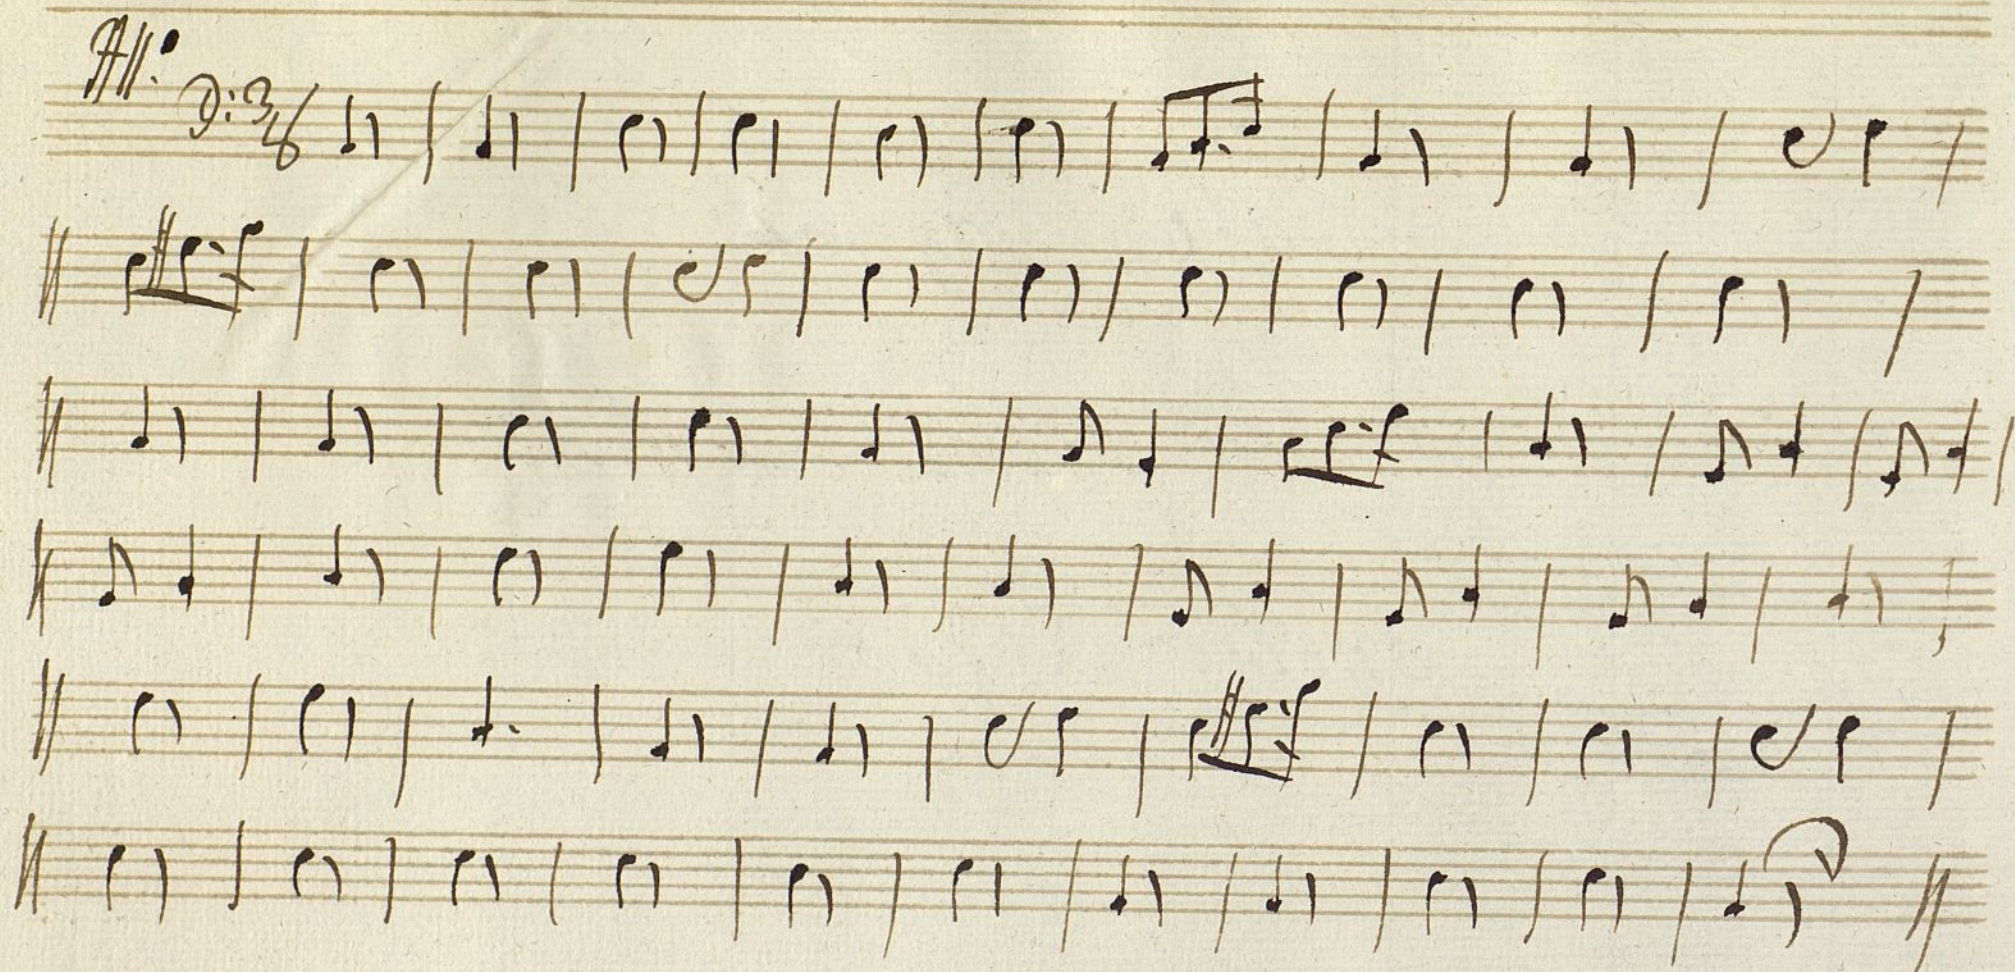 All:o
3/8